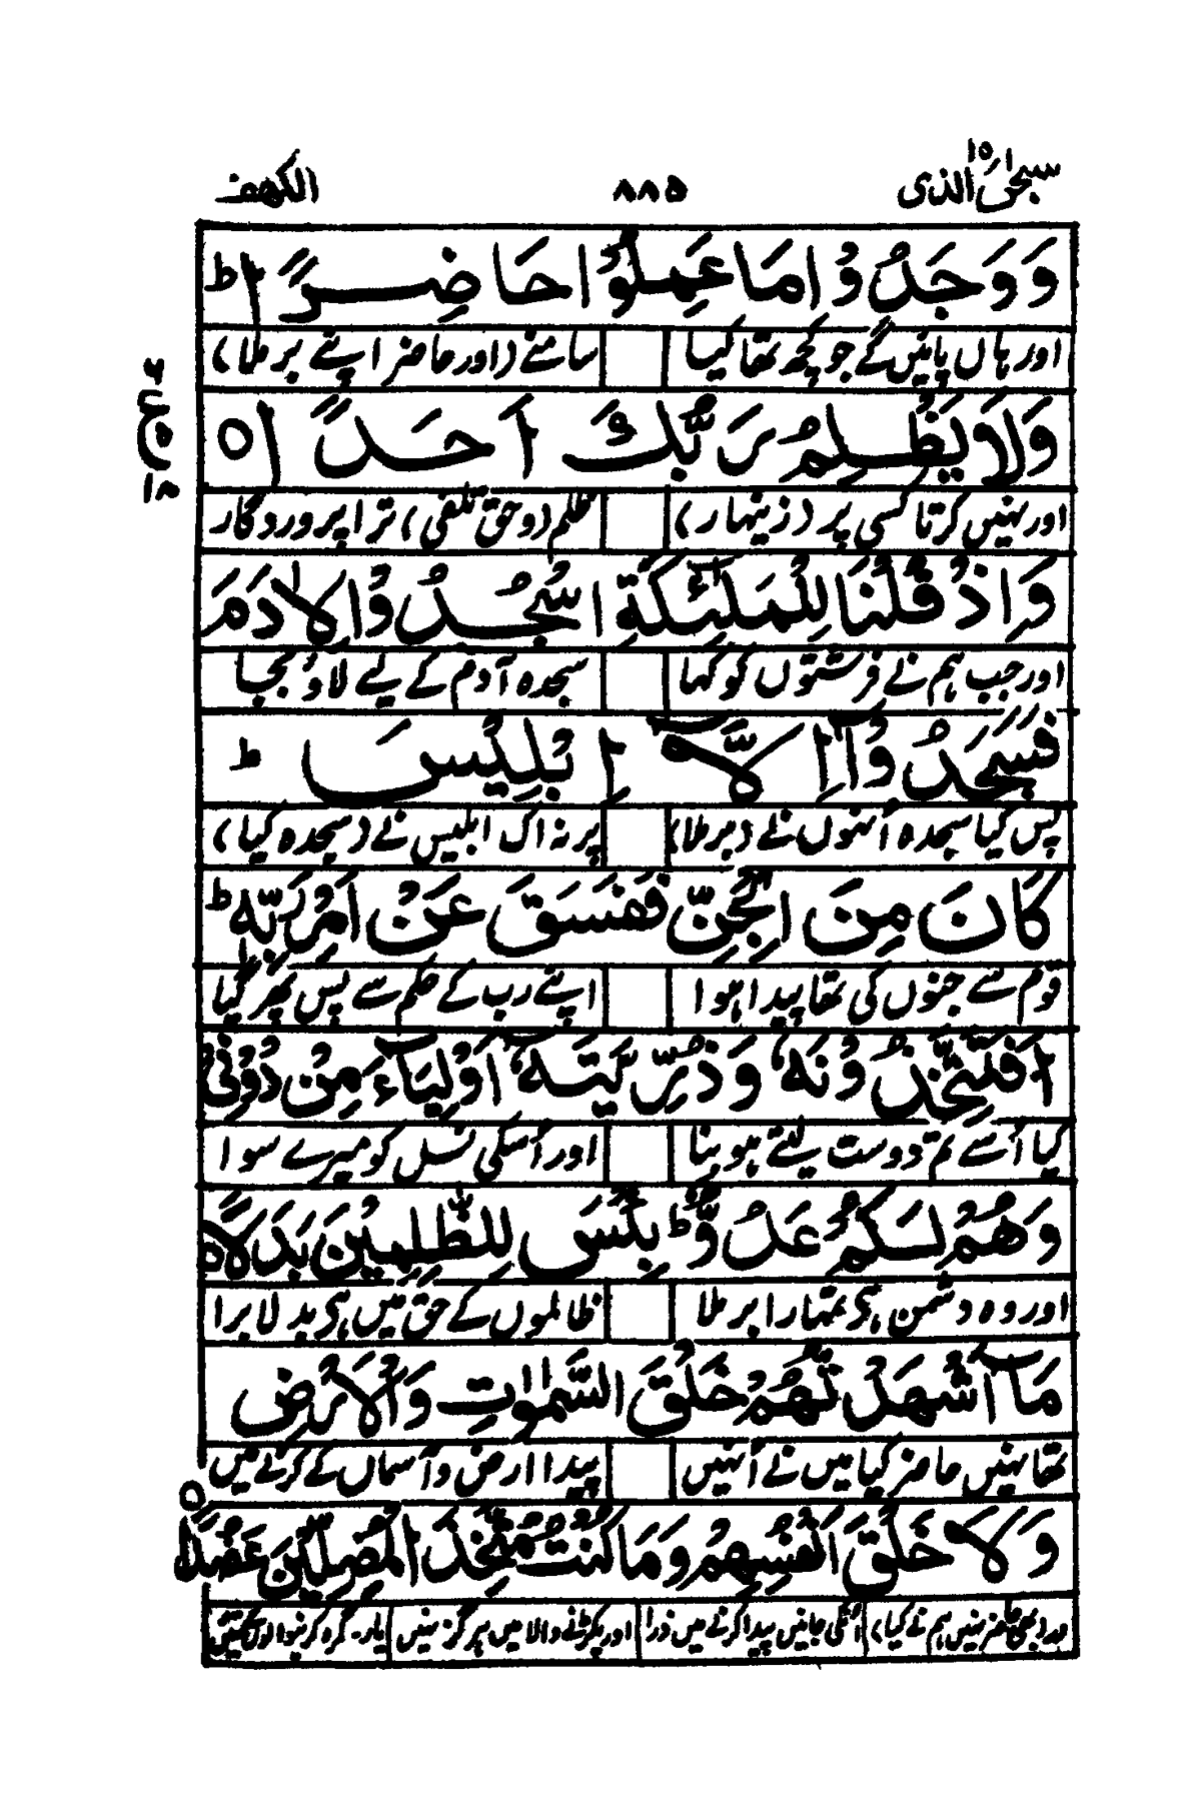 سبحٰن الذی ۱۵ ۸۸۵ الکھف
وَوَجَدُوْا مَا عَمِلُوْا حَاضِرًا ؕ
اور ہاں پائیں گے جو کچھ تھا کیا سامنے (اور حاضر اپنے برملا)
وَلَا يَظْلِمُ رَبُّكَ اَحَدًا ۝
اور نہیں کرتا کسی پر (زینہار) ظلم (و حق تلفی) ترا پروردگار
وَاِذْ قُلْنَا لِلْمَلٰٓئِكَةِ اسْجُدُوْا لِاٰدَمَ
اور جب ہم نے فرشتوں کو کہا سجدہ آدم کے لیے لاؤ بجا
فَسَجَدُوْٓا اِلَّآ اِبْلِيْسَ ؕ
پس کیا سجدہ اُنہوں نے (برملا) پر نہ اک ابلیس نے (سجدہ کیا)
كَانَ مِنَ الْجِنِّ فَفَسَقَ عَنْ اَمْرِ رَبِّهٖ ؕ
قوم سے جنوں کی تھا پیدا ہوا اپنے رب کے حکم سے پس پھر گیا
اَفَتَتَّخِذُوْنَهٗ وَذُرِّيَّتَهٗٓ اَوْلِيَآءَ مِنْ دُوْنِيْ
کیا اُسے تم دوست لیتے ہو بنا اور اُسکی نسل کو میرے سوا
وَهُمْ لَكُمْ عَدُوٌّ ؕ بِئْسَ لِلظّٰلِمِيْنَ بَدَلًا ۝
اور وہ دشمن ہی تمہارا برملا ظالموں کے حق میں ہی بدلا برا
مَآ اَشْهَدْتُّهُمْ خَلْقَ السَّمٰوٰتِ وَالْاَرْضِ
تھا نہیں حاضر کیا میں نے اُنہیں پیدا ارض و آسماں کے کرنے میں
وَلَا خَلْقَ اَنْفُسِهِمْ وَمَا كُنْتُ مُتَّخِذَ الْمُضِلِّيْنَ عَضُدًا ۝
حاضر نہیں ہم نے کیا) اُنکی جانیں پیدا کرنے میں ذرا اور پکڑنے والا میں ہرگز نہیں یار۔ گمرہ کرنیوالوں کے تئیں
ع
۱۸